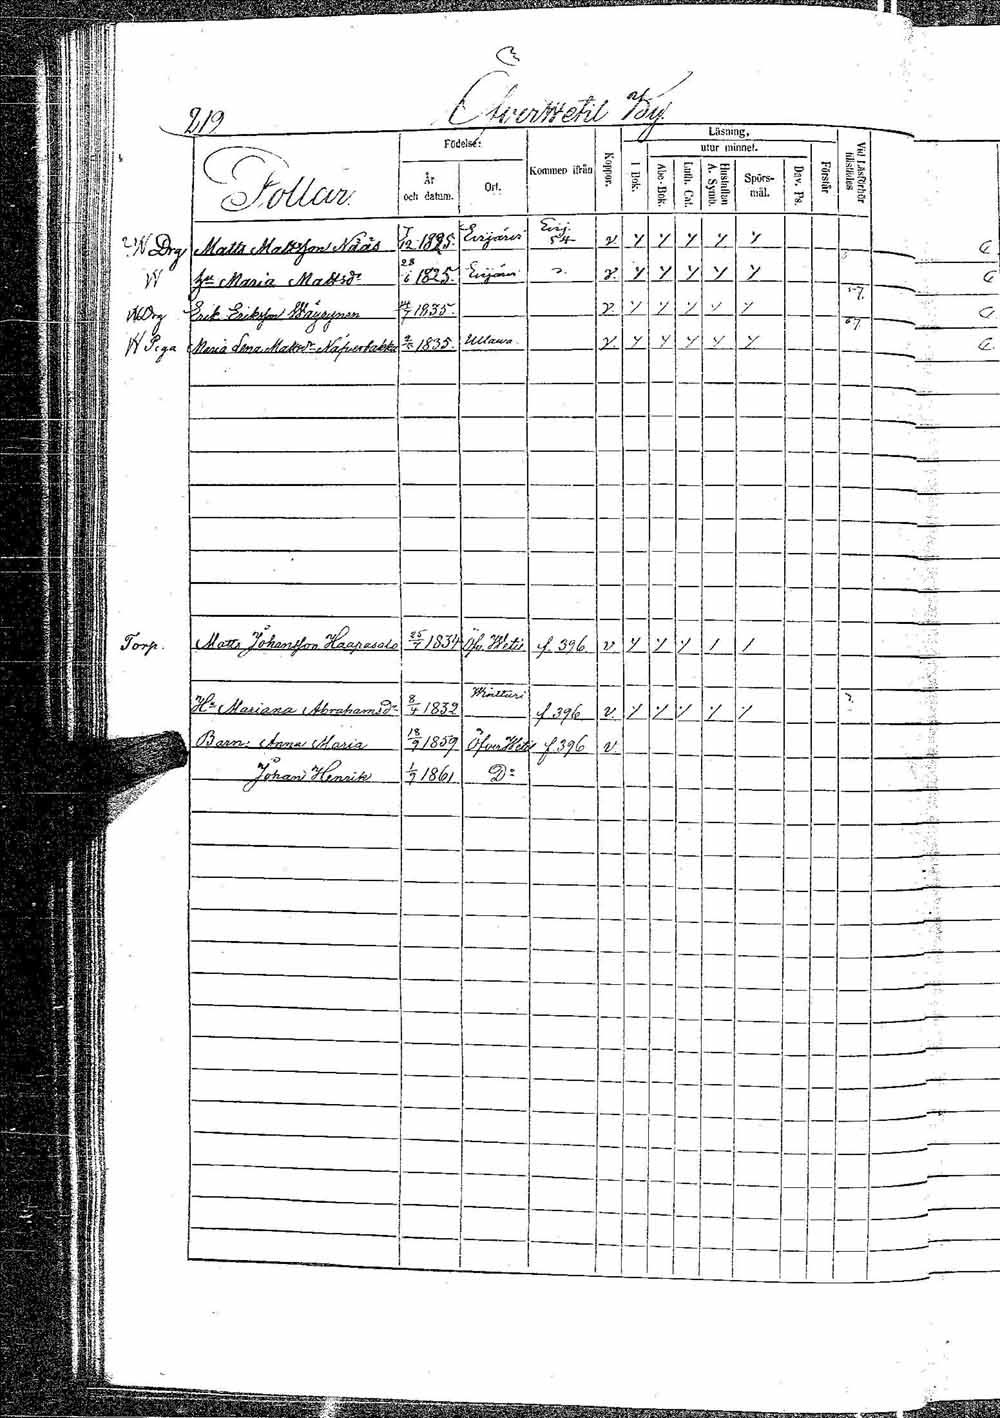 219 Öfverwetil By.
Follar.
Födelse:
År och datum.
Ort.
Kommen ifrån
Koppor.
Läsning,
utur minnet.
I Bok.
Abc-Bok.
Luth. Cat.
Hustaflan A. Symb.
Spörs-mål.
Dav. Ps.
Förstår
Vid Läsförhör tillstädes
Drg Matts Mattsson Nääs 7/12 1825. Evijärvi Evij. 54 v
H:u Maria Mattsd:r 28/6 1825. Evijärvi v
Drg Erik Eriksson 1835. v 57.
Piga Maria Lena Mattsd:r 1835. Ullawa. v 67
Torp. Matts Johansson Haapasalo 25/7 1834 Öfv. Wetil f. 396 v
H:u Mariana Abrahamsd:r 8/4 1832 f 396 v.
Barn: Anna Maria 18/9 1859 Öfver Wetil f. 396 v
Johan Henrik 1/9 1861 D:o